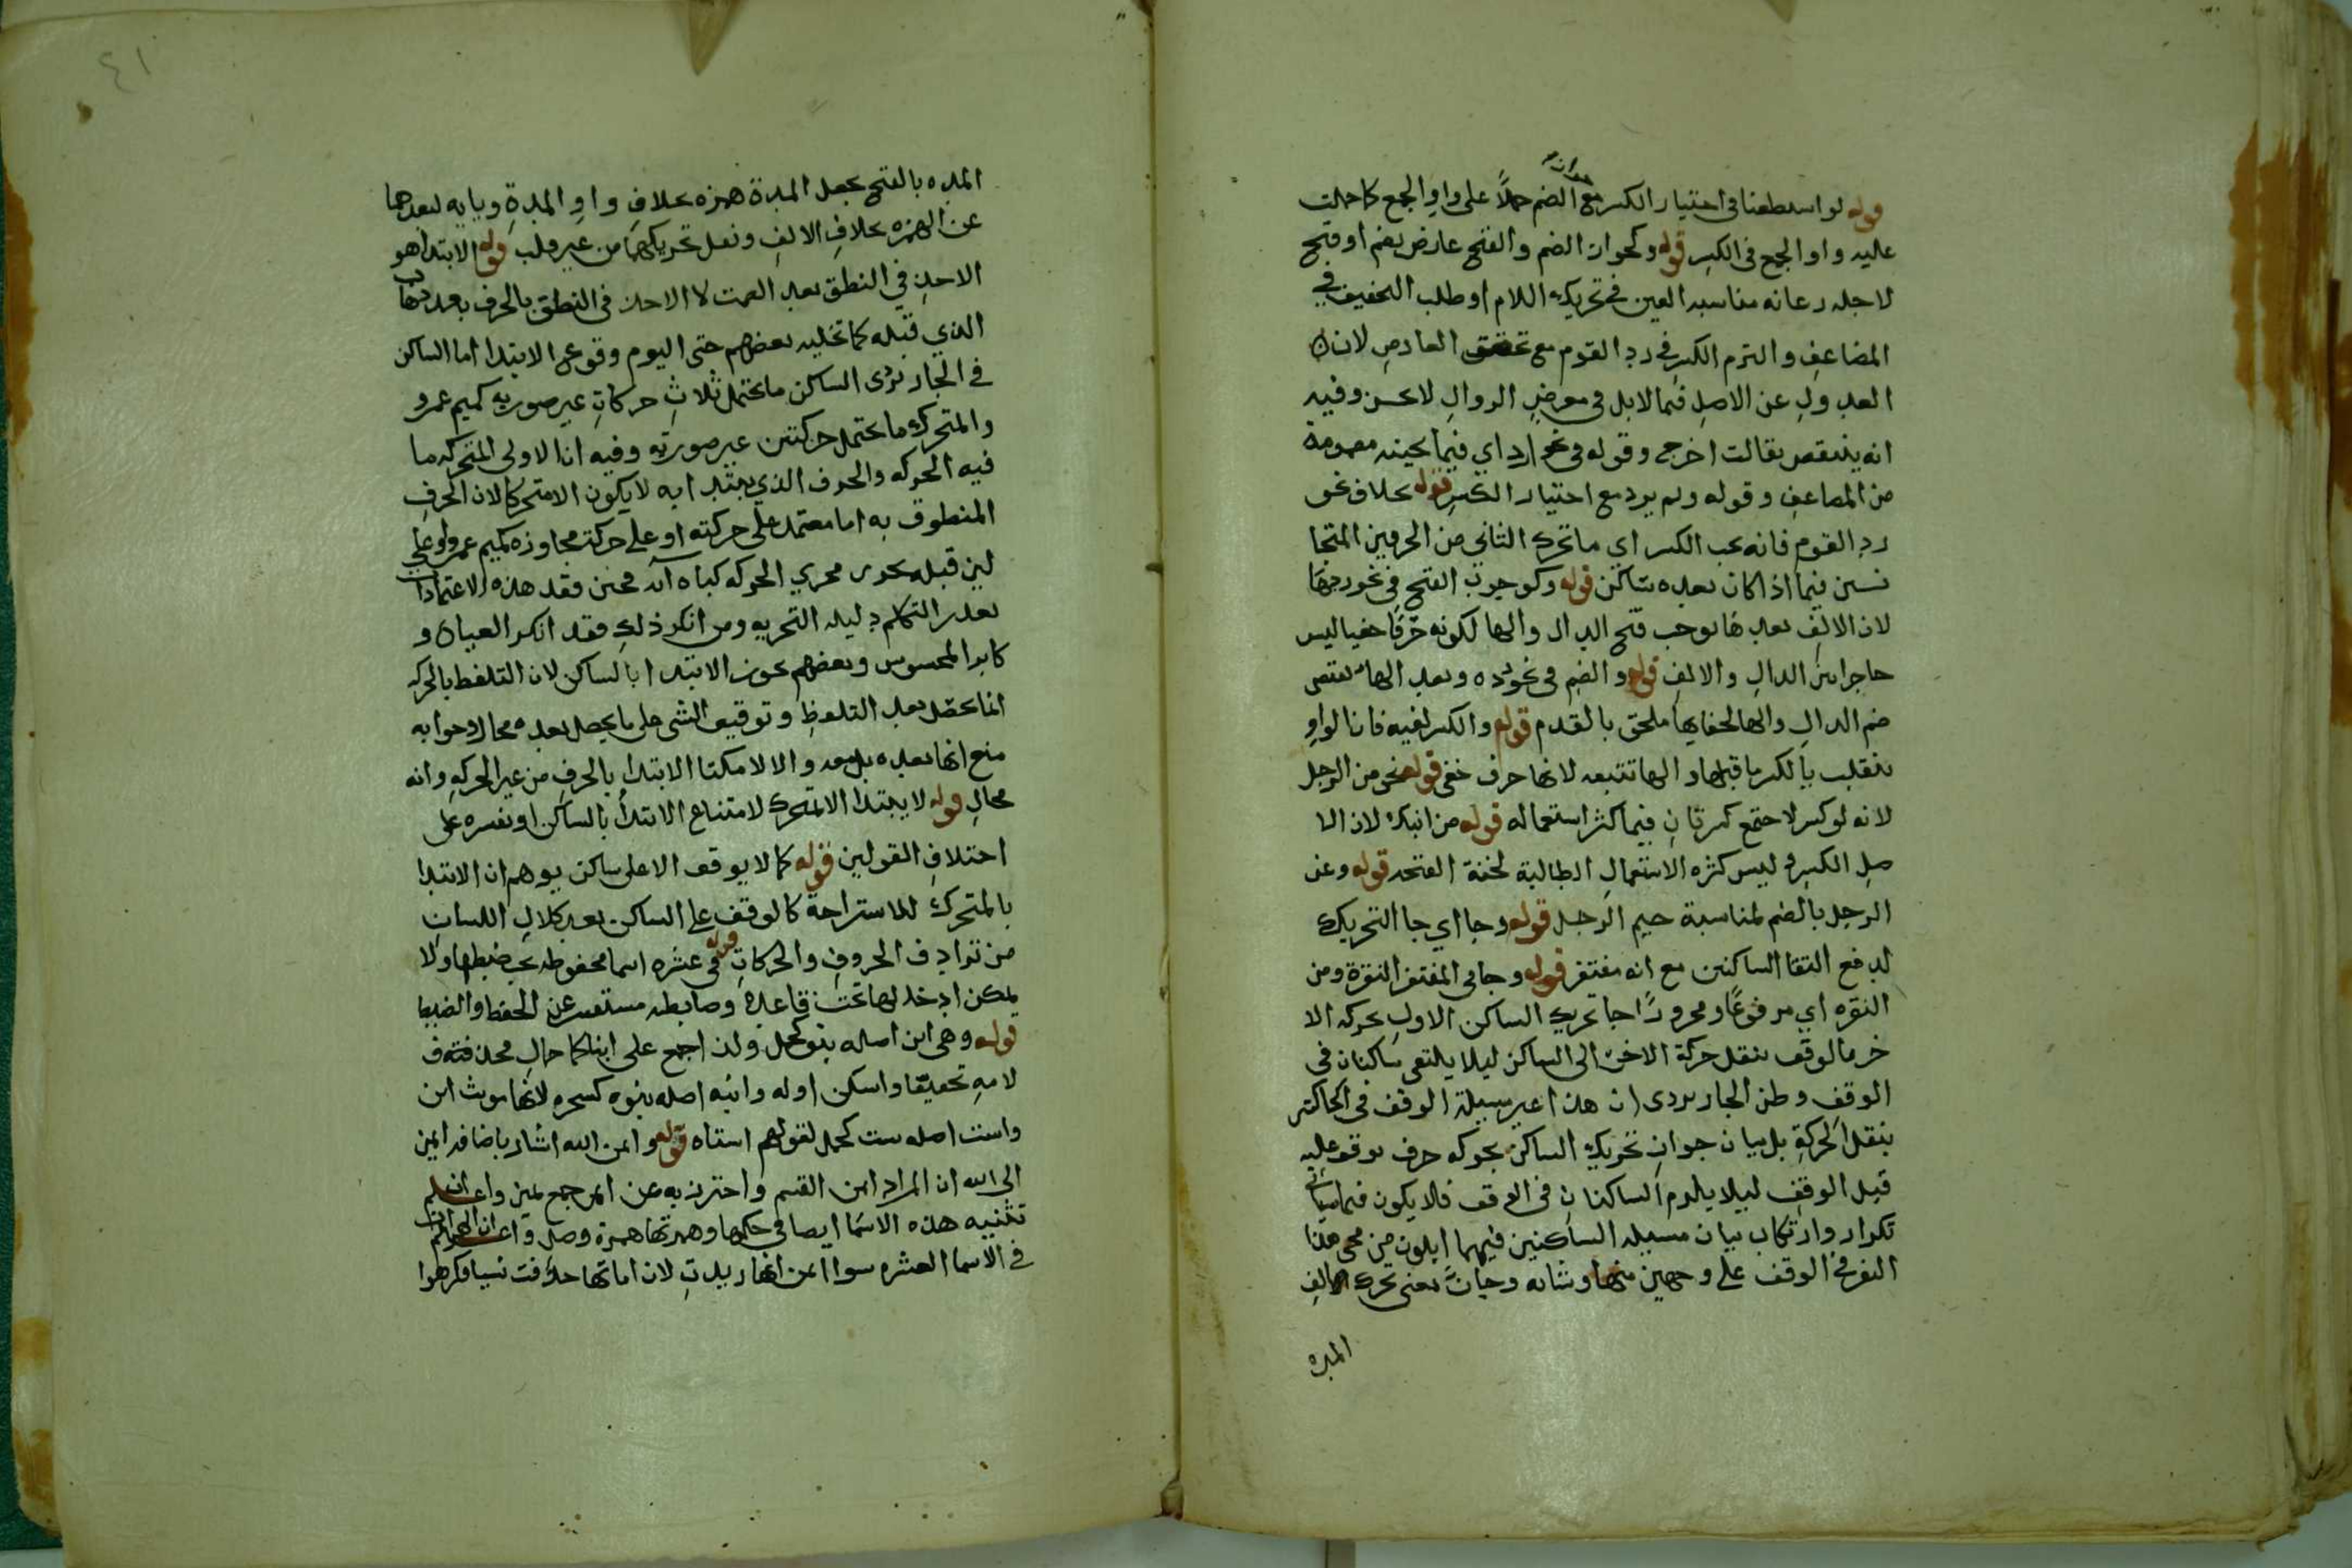 قوله لو استطعنا في اختيار الكسر مع الضم حملاً على واو الجمع كما حملت
عليه واو الجمع في الكسر قوله وكجواز الضم والفتح عارض بضم او فتح
لاجله رعاية مناسبة العين في تحريك اللام او طلب التخفيف في
المضاعف والتزم الكسر في رد القوم مع تحقق العارض لان
العدول عن الاصل فيما لا بل في معرض الزوال لا يحسن وفيه
انه ينتقض بقالت اخرج وقوله في نحو اردد اي فيما عينه مضمومة
من المضاعف وقوله ولم يرد مع اختيار الكسر قوله بخلاف نحو
رد القوم فانه يجب الكسر اي ما تحرك الثاني من الحرفين المتجا
نسين فيما اذا كان بعده ساكن قوله وكوجوب الفتح في نحو ردها
لان الالف بعدها يوجب فتح الدال والها لكونه حرفا خفيا ليس
حاجرا بين الدال والالف قوله والضم في نحو رده وبعد الهاء يقتضي
ضم الدال والها لخفايها ملحق بالقدم قوله والكسر لغيه فان الواو
ينقلب يا لكسر ما قبلها والها تتبعه لانها حرف خفي قوله نحو من الرجل
لانه لو كسر لاجتمع كسرتان فيما كثر استعماله قوله من ابنك لان الا
صل الكسر وليس كثره الاستعمال الطالبة لخفة الفتحه قوله وعن
الرجل بالضم لمناسبة جيم الرجل قوله وجا اي جا التحريك
لدفع التقا الساكنين مع انه مغتفر قوله وجا في المغتفر النقرة ومن
النقره اي مرفوعًا ومجرورًا جا تحريك الساكن الاول بحركه الا
خر ما لوقف بنقل حركة الاخر الى الساكن ليلا يلتقي ساكنان في
الوقف وظن الجاربردى ان هذا غير مسيلة الوقف في الحاكتر
بنقل الحركة بل بيان جواز تحريك الساكن بحركه حرف يوقف عليه
قبل الوقف ليلا يلزم الساكنان في الوقف فلا يكون فيما سياتي
تكرار وارتكاب بيان مسيله الساكنين فيهما ايلون من محى هذا
النقر في الوقف على وجهين منها وشابه وجان يعني تحرك الالف
المده
٤١
المده بالفتح بجعل المدة همزه بخلاف واو المدة ويايه لبعدهما
عن الهمزه بخلاف الالف ونعل تحريكها من غير قلب قوله الابتدا هو
الاخذ في النطق بعد الصمت لا الاخذ في النطق بالحرف بعد ذهاب
الذي قبله كما تخليه بعضهم حتى اليوم وقوع الابتدا اما الساكن
في الجاربردى الساكن ما يحتمل ثلاث حركات غير صوريه كميم عمرو
والمتحرك ما يحتمل حركتين غير صورته وفيه ان الاولى المتحركه ما
فيه الحركه والحرف الذي يبتدا به لا يكون الا متحركا لان الحرف
المنطوق به اما معتمد على حركته او على حركة مجاوزه كميم عمرو او على
لين قبله يجرى مجرى الحركه كباء دابه فمتى فقد هذه الاعتمادات
تعذر التكلم دليله التجربه ومن انكر ذلك فقد انكر العيان و
كابر المحسوس وبعضهم يجوز الابتدا بالساكن لان التلفظ بالحركه
انما يحصل بعد التلفظ وتوقيف الشي على ما يحصل بعده محال وجوابه
منع انها بعده بل معه والا لامكننا الابتدا بالحرف من غير الحركه وانه
محال قوله لا يبتدا الا بمتحرك لامتناع الابتدأ بالساكن او تعسره على
اختلاف القولين قوله كما لا يوقف الا على ساكن يوهم ان الابتدا
بالمتحرك للاستراحة كالوقف على الساكن بعد كلال اللسان
من ترادف الحروف والحركات قوله في عشره اسما محفوظه يجب ضبطها ولا
يمكن ادخالها تحت قاعدة وضابطه مستغنى عن الحفظ والضبط
قوله وهي ابن اصله بنو كجمل ولذا جمع على ابنا كاحمال محذفته ف
لامه تخفيفا واسكن اوله وابنه اصله بنوه كشجره لانها مونث ابن
واست اصله سته كجمل لقولهم استاه قوله وايمن الله اشار باضافة ايمن
الى الله ان المراد ايمن القسم واحترز به عن ايمن جمع يمين واعلم ان
تثنيه هذه الاسما ايضا في حكمها وهمزتها همزة وصل واعلم ان الهمزات
في الاسما العشره سوا ايمن انها زيدت لان اماتها حذفت نسيا فكرهوا